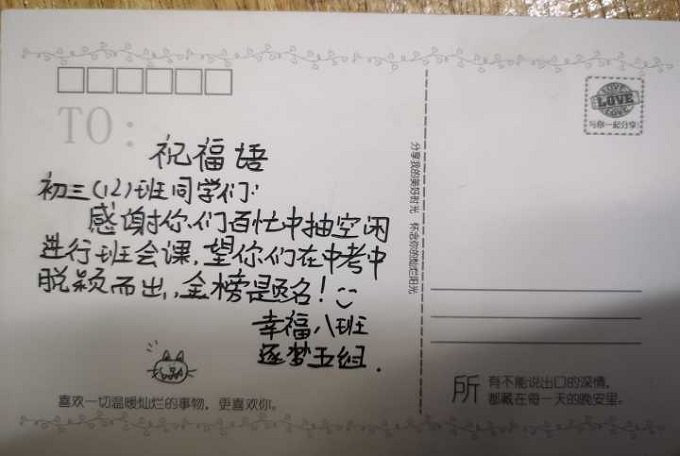 TO：
祝福语
初三(12)班同学们：
感谢你们百忙中抽空闲
进行班会课，望你们在中考中
脱颖而出，金榜是题名！
幸福八班
逐梦五组.
喜欢一切温暖灿烂的事物，更喜欢你。
分享我的美好时光 怀念你的灿烂阳光
LOVE
与你一起分享
所
有不能说出口的深情，
都藏在每一天的晚安里。